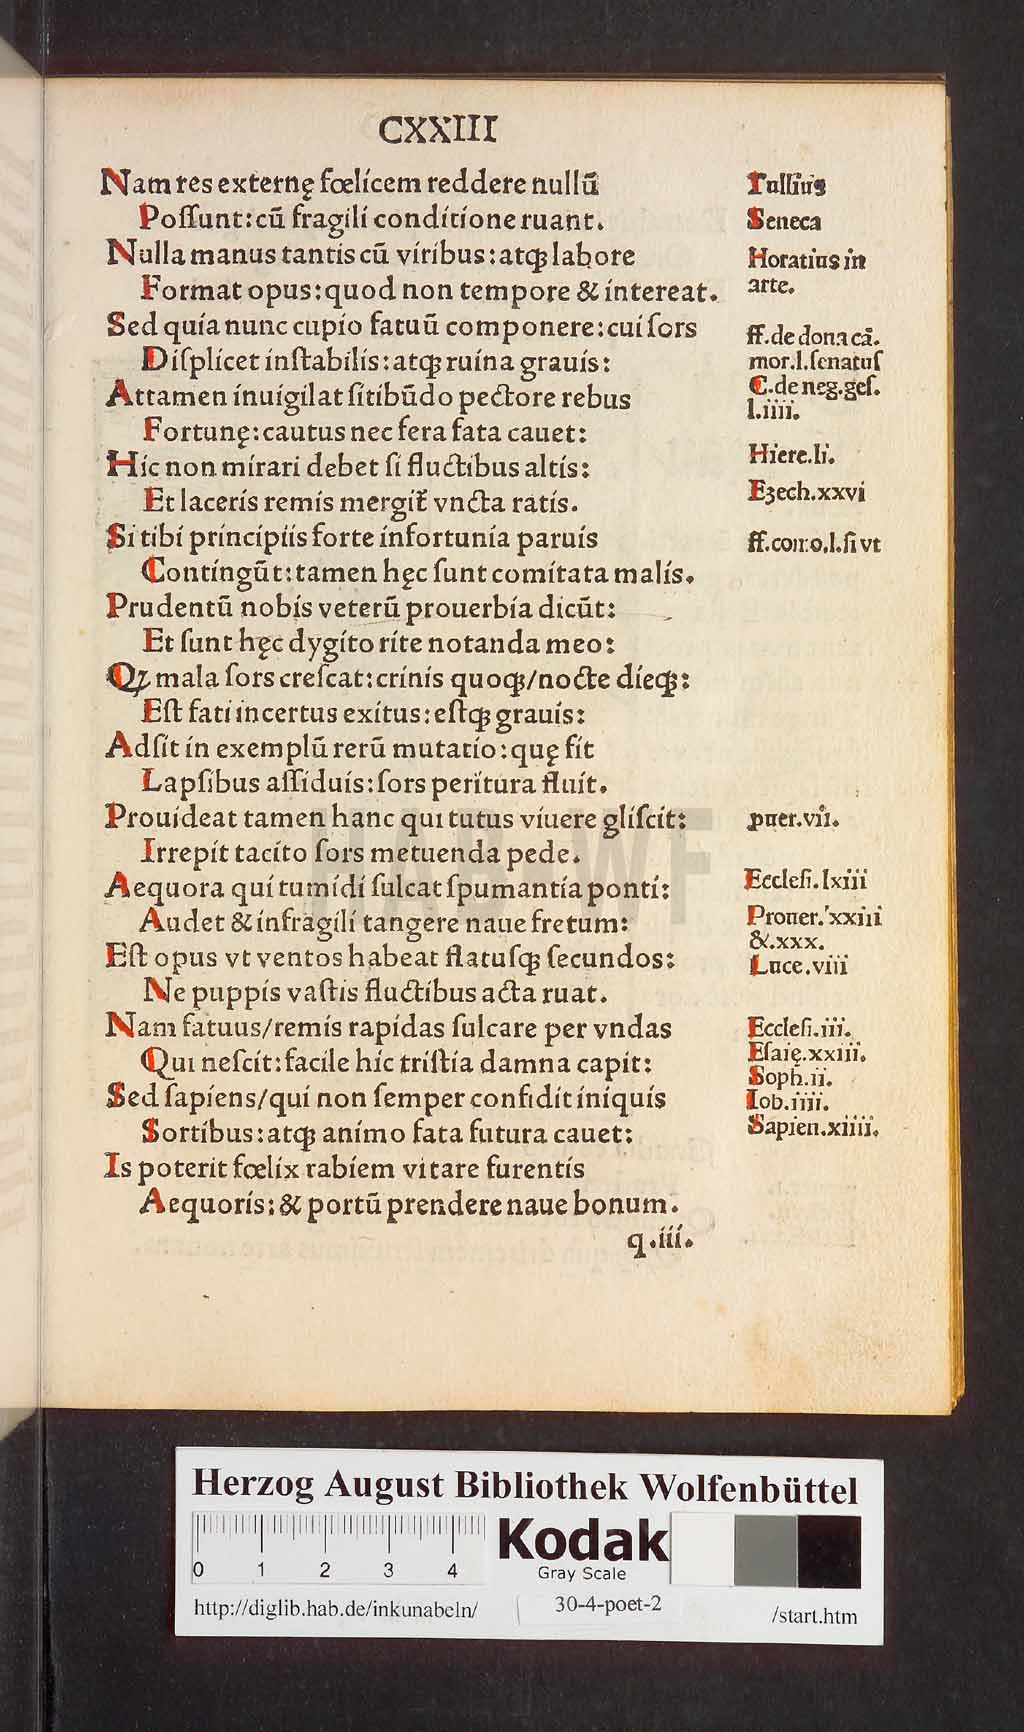 CXXIII
Nam res externę fœlicem reddere nullū
Poſſunt: cū fragili conditione ruant.
Nulla manus tantis cū viribus: atqꝫ labore
Format opus: quod non tempore & intereat.
Sed quia nunc cupio fatuū componere: cui ſors
Diſplicet inſtabilis: atqꝫ ruina grauis:
Attamen inuigilat ſitibūdo pectore rebus
Fortunę: cautus nec fera fata cauet:
Hic non mirari debet ſi fluctibus altis:
Et laceris remis mergit᷑ vncta ratis.
Si tibi principiis forte infortunia paruis
Contingūt: tamen hęc ſunt comitata malis.
Prudentū nobis veterū prouerbia dicūt:
Et ſunt hęc dygito rite notanda meo:
Qꝫ mala ſors creſcat: crinis quoqꝫ/nocte dieqꝫ:
Eſt fati incertus exitus: eſtqꝫ grauis:
Adſit in exemplū rerū mutatio: quę ſit
Lapſibus aſſiduis: ſors peritura fluit.
Prouideat tamen hanc qui tutus viuere gliſcit:
Irrepit tacito ſors metuenda pede.
Aequora qui tumidi ſulcat ſpumantia ponti:
Audet & infragili tangere naue fretum:
Eſt opus vt ventos habeat flatuſqꝫ ſecundos:
Ne puppis vaſtis fluctibus acta ruat.
Nam fatuus/remis rapidas ſulcare per vndas
Qui neſcit: facile hic triſtia damna capit:
Sed ſapiens/qui non ſemper confidit iniquis
Sortibus: atqꝫ animo fata futura cauet:
Is poterit fœlix rabiem vitare furentis
Aequoris: & portū prendere naue bonum.
q.iii.
Tullius
Seneca
Horatius in
arte.
ff. de dona cā.
mor.l.ſenatuſ
C.de neg.geſ.
l.iiii.
Hiere.li.
Eꝫech.xxvi
ff.com.o.l.ſi vt
ꝓuer.vii.
Eccleſi.lxiii
Prouer.xxiii
&.xxx.
Luce.viii
Eccleſi.iii.
Eſaię.xxiii.
Soph.ii.
Iob.iiii.
Sapien.xiiii.
HAB WF
Herzog August Bibliothek Wolfenbüttel
0 1 2 3 4
Kodak
Gray Scale
http://diglib.hab.de/inkunabeln/
30-4-poet-2
/start.htm